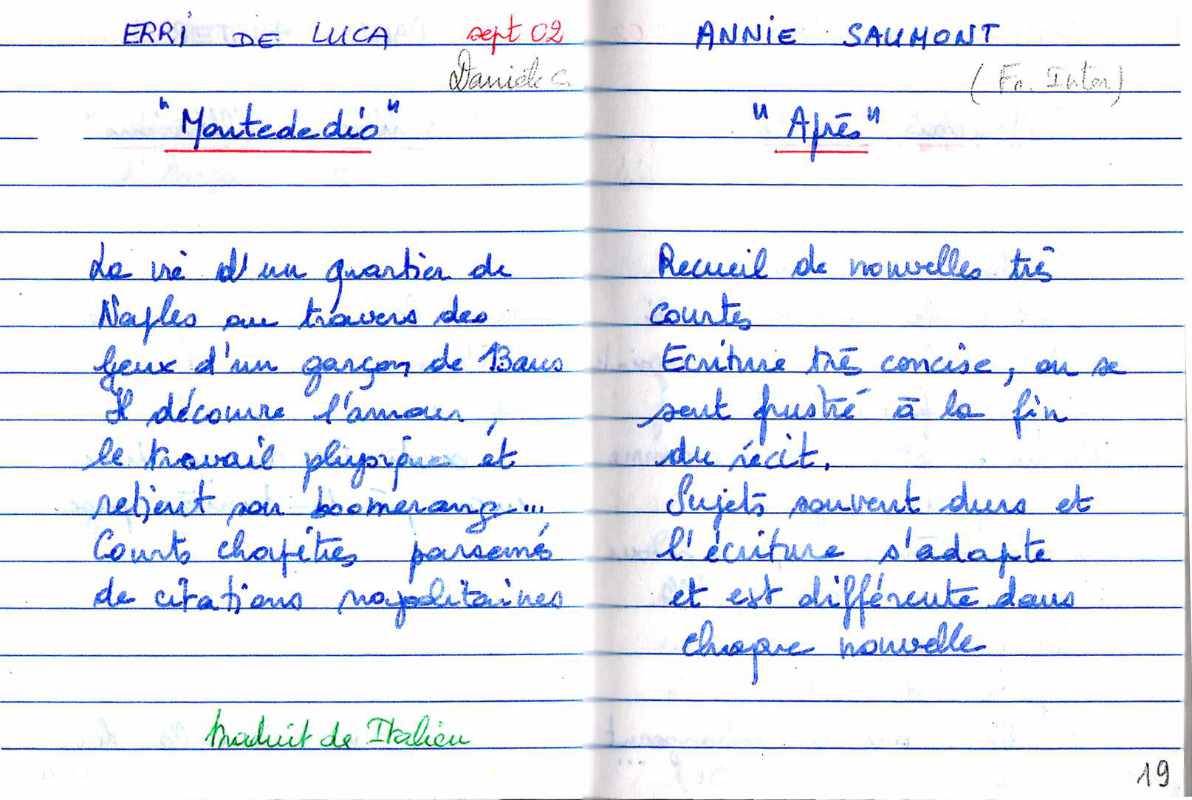 ERRI DE LUCA sept 02
Danièle C.
"Montededio"
La vie d'un quartier de
Naples au travers des
yeux d'un garçon de 13ans
Il découvre l'amour,
le travail physique et
retient son boomerang...
Courts chapitres parsemés
de citations napolitaines
traduit de Italien
ANNIE SAUMONT
(Fr. Inter)
"Après"
Recueil de nouvelles très
courtes
Ecriture très concise, on se
sent frustré à la fin
du récit.
Sujets souvent durs et
l'écriture s'adapte
et est différente dans
chaque nouvelle
19